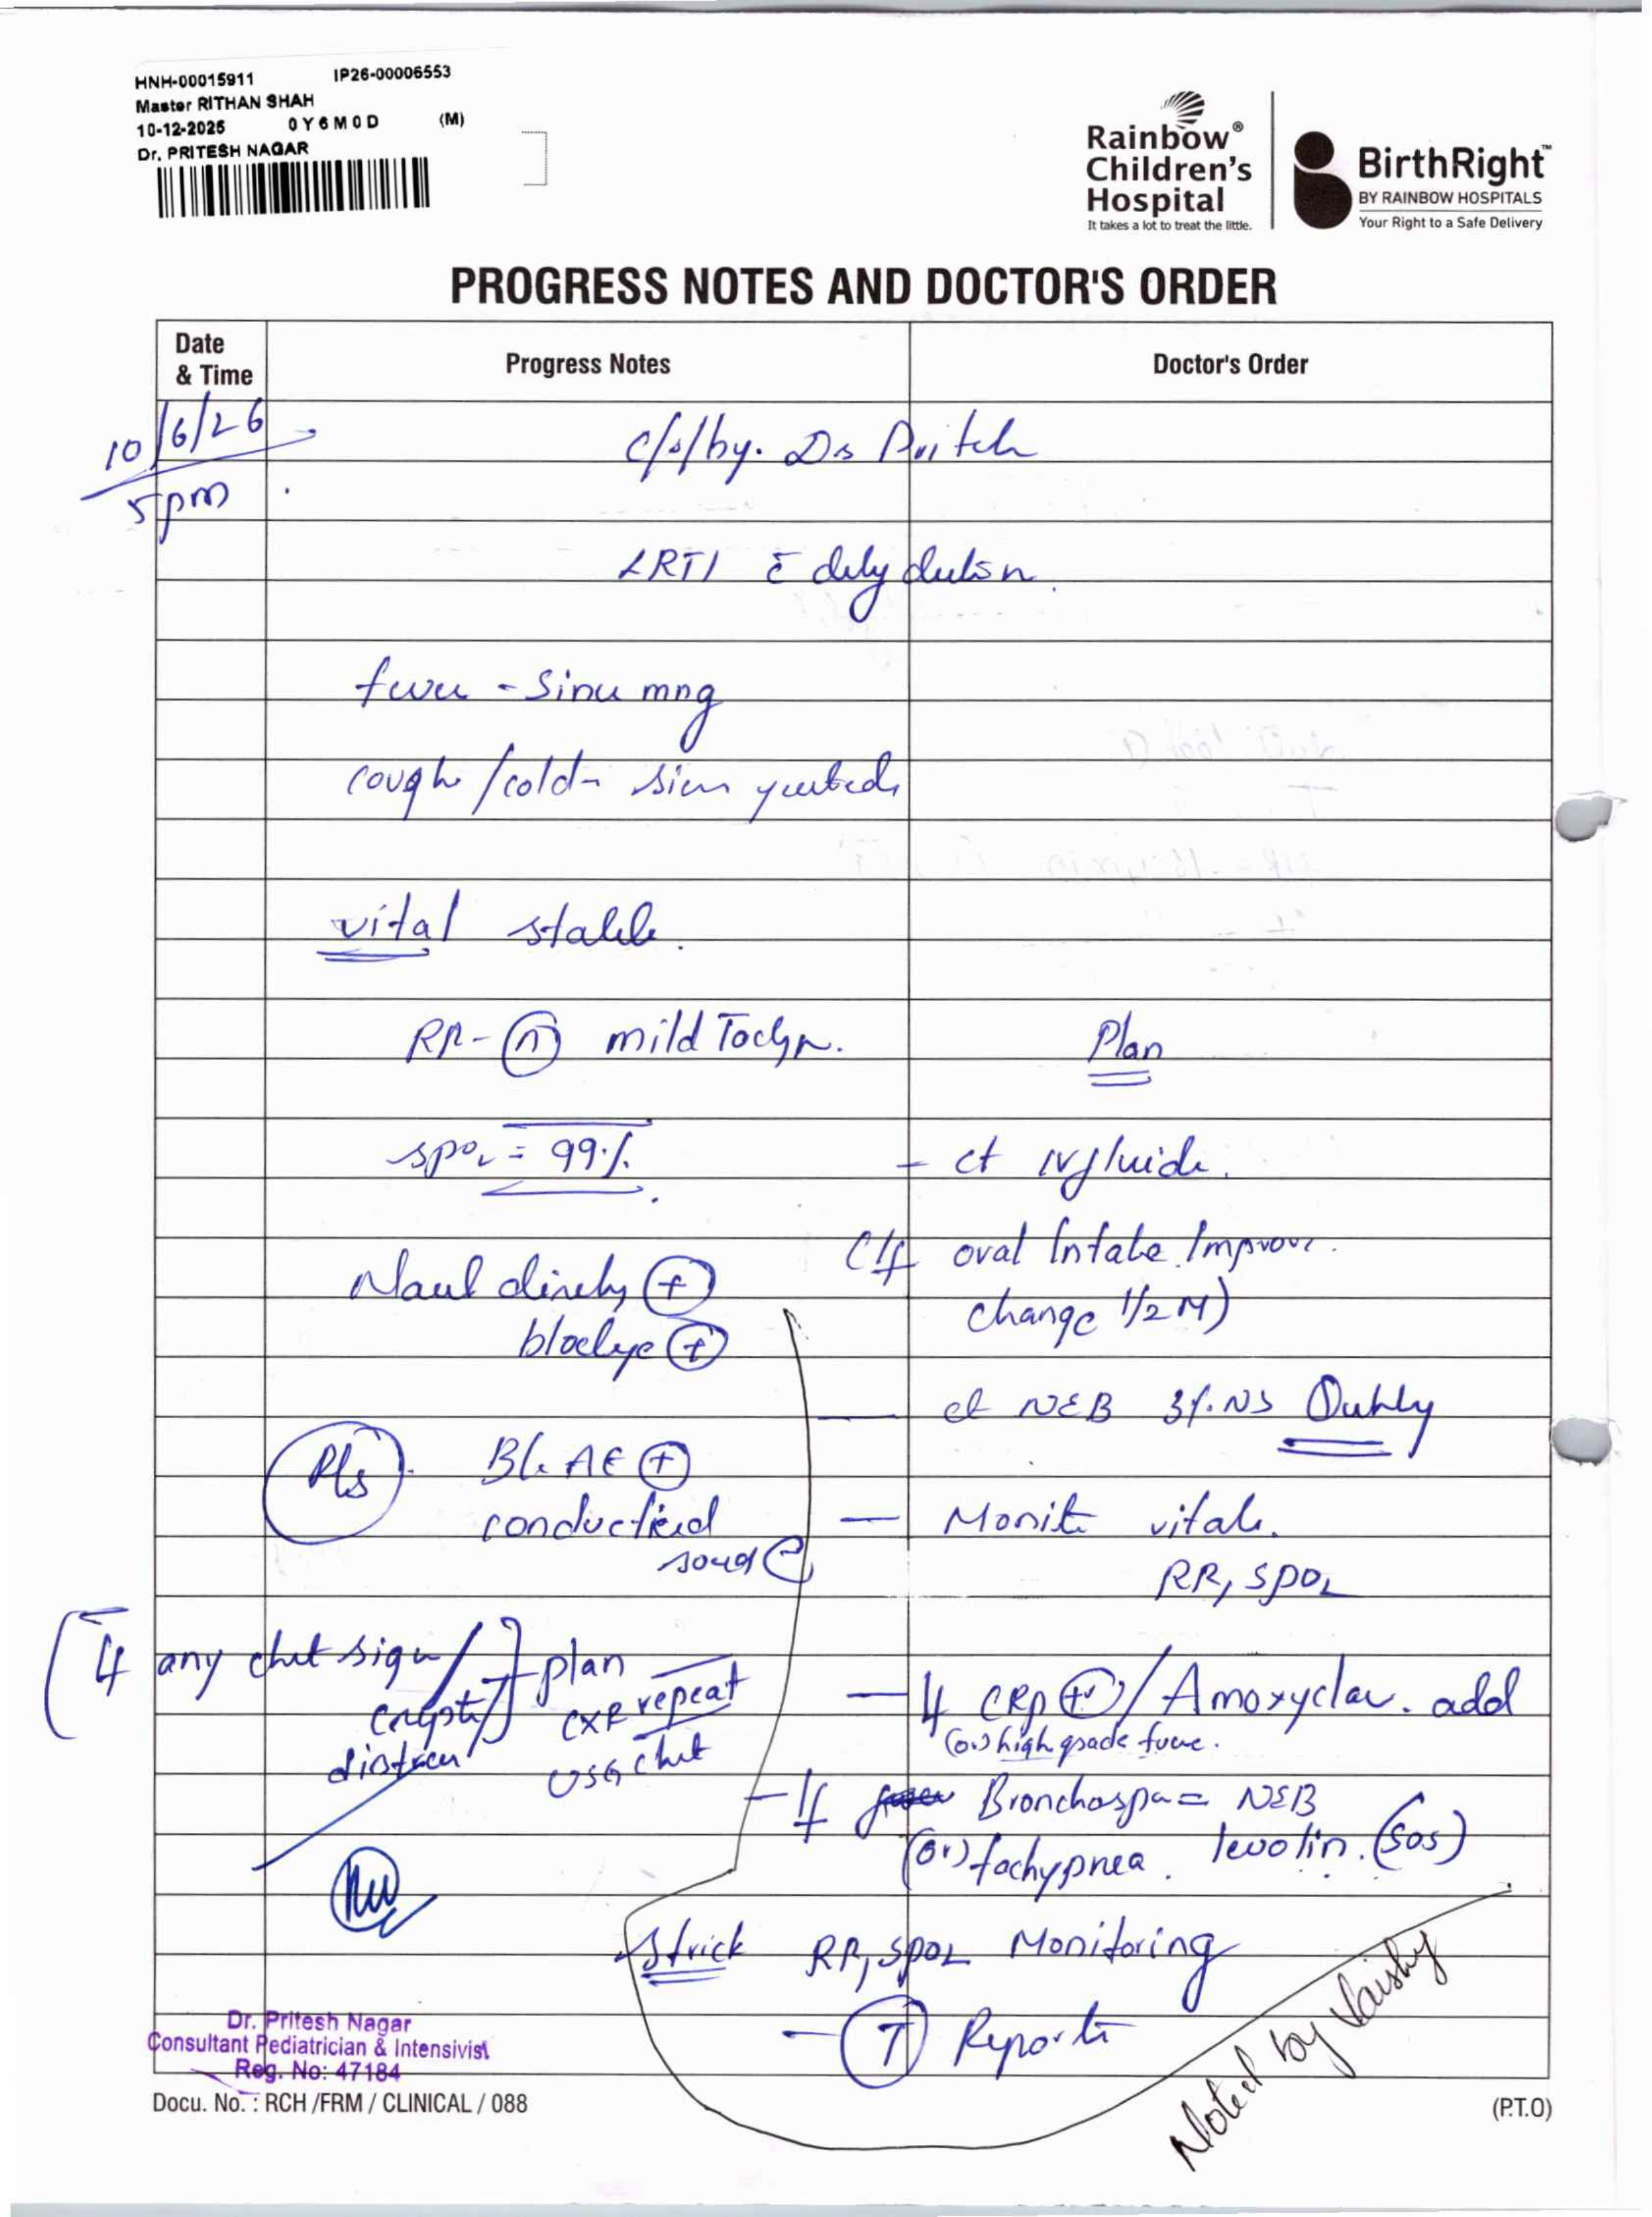 HNH-00015911 IP26-00006553
Master RITHAN SHAH
10-12-2025 0Y6M0D (M)
Dr. PRITESH NAGAR
Rainbow®
Children's
Hospital
It takes a lot to treat the little.
BirthRight™
BY RAINBOW HOSPITALS
Your Right to a Safe Delivery
PROGRESS NOTES AND DOCTOR'S ORDER
Date & Time
Progress Notes
Doctor's Order
10/6/26
5pm
c/s/by. Dr Pritesh
LRTI c̄
- Since mng
cough /cold -
vital stable.
RR - (n) mild
Plan
SpO2 = 99%.
- ct IV fluids.
(If oral Intake Improve.
change 1/2 M)
(+)
(+)
- ct NEB 3%. NS
P/s
B/L AE (+)
conducted
sound (+)
- Monitor vitals.
RR, SPO2
[If any chest sign/
distress
plan
CXR repeat
USG chest
- If CRP (+ve)/ Amoxyclav. add
(or) high grade fever.
- If Bronchospasm = NEB
(or) tachypnea. levolin. (SOS)
Strict RR, SPO2 Monitoring
- (T) Reports
Noted by
Dr. Pritesh Nagar
Consultant Pediatrician & Intensivist
Reg. No: 47184
Docu. No. : RCH /FRM / CLINICAL / 088
(P.T.O)